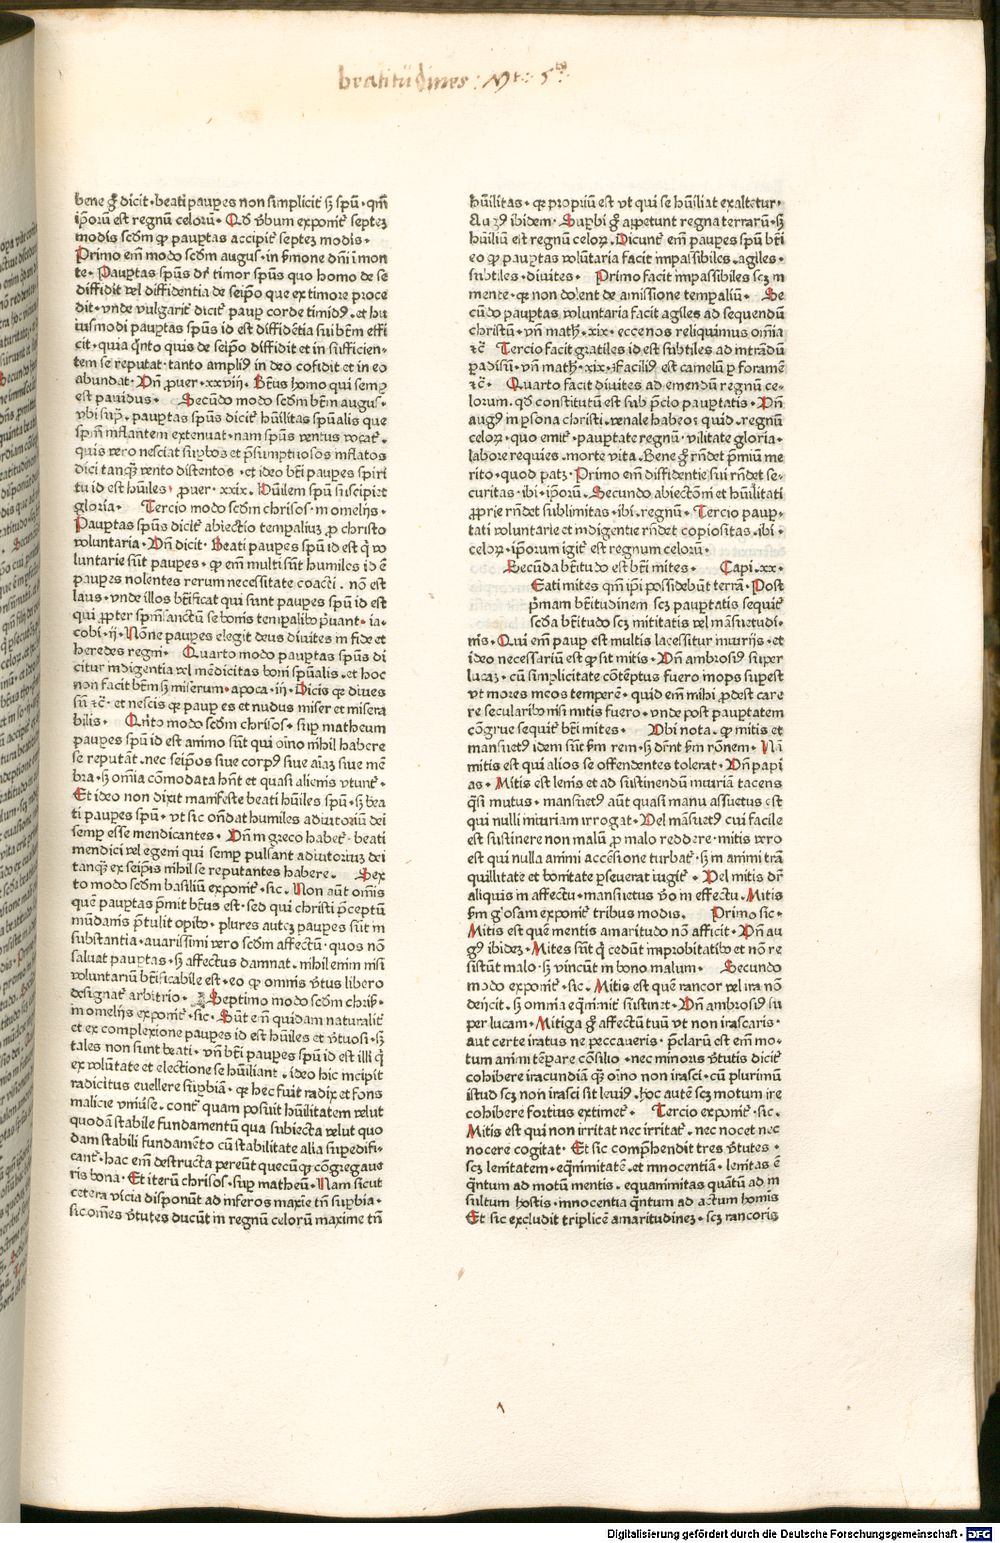 beatitudines : Mt : 5ta :
bene gͦ dicit · beati paupes non simplicit sꝫ spū · qm̄
ip̄oꝝ est regnū celorū · Qd̄ v̄bum exponit᷑ septeꝫ
modis scd̄m ꝙ paup̄tas accipit᷑ septeꝫ modis ·
Primo em̄ modo scd̄m augus · in s̄mone dn̄i ī mon
te · Paup̄tas spūs dr̄ timor spūs quo homo de se
diffidit vel diffidentia de seip̄o que ex timore proce
dit · vnde vulgarit᷑ dicit᷑ paup corde timidꝰ · et hu
iusmodi paup̄tas spūs id est diffidētia sui bt̄m effi
cit · quia q̄nto quis de seip̄o diffidit et in sufficien-
tem se reputat · tanto ampliꝰ in deo cōfidit et in eo
abundat · Vn̄ ꝓuer · xxviij · Bt̄us homo qui semꝑ
est pauidus · Secūdo modo scd̄m bt̄m augus ·
vbi sup̄ · paup̄tas spūs dicit᷑ hūilitas spūalis que
spm̄ inflantem extenuat · nam spūs ventus vocat᷑ ·
quis vero nesciat supbos et p̄sumptuosos inflatos
dici tanqꝫ vento distentos · et ideo bt̄i paupes spiri
tu id est hūiles · ꝓuer · xxix · Hūilem spū suscipiet
gloria · Tercio modo scd̄m chrisos · in omelijs ·
Paup̄tas spūs dicit᷑ abiectio tempaliuꝫ ꝓ christo
voluntaria · Vn̄ dicit · Beati paupes spū id est q̄ vo
luntarie sūt paupes · ꝙ em̄ multi sūt humiles id ē
paupes nolentes rerum necessitate coacti · nō est
laus · vnde illos bt̄ificat qui sunt paupes spū id est
qui ꝓpter spm̄ sanctū se bonis tempalibꝰ p̄uant · ia-
cobi · ij · Nōne paupes elegit deus diuites in fide et
heredes regni · Quarto modo paup̄tas spūs di
citur indigentia vel mēdicitas boni spūalis · et hoc
non facit bt̄m sꝫ miserum · apoca · iij · Dicis ꝙ diues
sū ⁊c̄ · et nescis ꝙ paup es et nudus miser et misera
bilis · Qn̄to modo scd̄m chrisos · sup matheum
paupes spū id est animo sūt qui oīno nihil habere
se reputāt · nec seip̄os siue corpꝰ siue aīaꝫ siue mē
bra · sꝫ om̄ia cōmodata hn̄t et quasi alienis vtunt᷑ ·
Et ideo non dixit manifeste beati hūiles spū · sꝫ bea
ti paupes spū · vt sic ond̄at humiles adiutoriū dei
semꝑ esse mendicantes · Vn̄ in greco habet᷑ · beati
mendici vel egeni qui semꝑ pulsant adiutoriuꝫ dei
tanqꝫ ex seip̄is nihil se reputantes habere · Sex
to modo scd̄m basiliū exponit᷑ · sic · Non aūt om̄is
quē paup̄tas p̄mit bt̄us est · sed qui christi p̄ceptū
mūdanis p̄tulit opibꝰ · plures auteꝫ paupes sūt in
substantia · auarissimi vero scd̄m affectū · quos nō
saluat paup̄tas · sꝫ affectus damnat · nihil enim nisi
voluntariū bt̄ificabile est · eo ꝙ omnis v̄tus libero
designat᷑ arbitrio · Septimo modo scd̄m chris̄ ·
in omelijs exponit᷑ · sic · Sūt em̄ quidam naturalit᷑
et ex complexione paupes id est hūiles et v̄tuosi · sꝫ
tales non sunt beati · vn̄ bt̄i paupes spū id est illi q̄
ex volūtate et electione se hūiliant · ideo hic incipit
radicitus euellere supbiā · ꝙ hec fuit radix et fons
malicie vniu̇se · contᷓ quam posuit hūilitatem velut
quodā stabile fundamentū qua subiecta velut quo
dam stabili fundamēto cū stabilitate alia supedifi-
cant᷑ · hac em̄ destructa pereūt quecūqꝫ cōgregaue
ris bona · Et iterū chrisos · sup matheū · Nam sicut
cetera vicia disponūt ad inferos maxīe tn̄ supbia ·
sic om̄es v̄tutes ducūt in regnū celorū maxime tn̄
hūilitas · ꝙ propriū est vt qui se hūiliat exaltetur ·
Augꝰ ibidem · Supbi gͦ appetunt regna terrarū · sꝫ
hūiliū est regnū celoꝝ · Dicunt᷑ em̄ paupes spū bt̄i
eo ꝙ paup̄tas volūtaria facit impassibiles · agiles ·
subtiles · diuites · Primo facit impassibiles scꝫ in
mente · ꝙ non dolent de amissione tempaliū · Se
cūdo paup̄tas voluntaria facit agiles ad sequendū
christū · vn̄ math̄ · xix · ecce nos reliquimus om̄ia
⁊c̄ · Tercio facit gratiles id est subtiles ad intrādū
ꝑadisū · vn̄ math̄ · xix · Faciliꝰ est camelū ꝑ foramē
⁊c̄ · Quarto facit diuites ad emendū regnū ce-
lorum · qd̄ constitutū est sub p̄cio paup̄tatis · Vn̄
augꝰ in ꝑsona christi · venale habeo · quid · regnū
celoꝝ · quo emit᷑ · paup̄tate regnū · vilitate gloria ·
labore requies · morte vita · Bene gͦ rn̄det p̄miū me
rito · quod patꝫ · Primo em̄ diffidentie sui rn̄det se-
curitas · ibi · ip̄orū · Secundo abiectōni et hūilitati
ꝓprie rn̄det sublimitas · ibi · regnū · Tercio paup̄-
tati voluntarie et indigentie rn̄det copiositas · ibi ·
celoꝝ · ip̄orum igit᷑ est regnum celorū ·
Secūda bt̄itudo est bt̄i mites · Capi · xx ·
Eati mites qm̄ ip̄i possidebūt terrā · Post
p̄mam bt̄itudinem scꝫ paup̄tatis sequit᷑
scd̄a bt̄itudo scꝫ mititatis vel māsuetudi-
nis · Qui em̄ paup est multis lacessitur iniurijs · et
ideo necessariū est ꝙ sit mitis · Vn̄ ambrosiꝰ super
lucaꝫ · cū simplicitate cōtēptus fuero inops supest
vt mores meos temperē · quid em̄ mihi ꝓdest care
re secularibꝰ nisi mitis fuero · vnde post paup̄tatem
cōgrue sequit᷑ bt̄i mites · Vbi nota · ꝙ mitis et
mansuetꝰ idem sūt s̄m rem · sꝫ dr̄nt s̄m rōnem · Nā
mitis est qui alios se offendentes tolerat · Vn̄ papi
as · Mitis est lenis et ad sustinendū iniuriā tacens
q̄si mutus · mansuetꝰ aūt quasi manu assuetus est
qui nulli iniuriam irrogat · Vel māsuetꝰ cui facile
est sustinere non malū ꝓ malo reddere · mitis vero
est qui nulla animi accēsione turbat᷑ · sꝫ in animi trā
quillitate et bonitate ꝑseuerat iugit᷑ · Vel mitis dr̄
aliquis in affectu · mansuetus v̄o in effectu · Mitis
s̄m glosam exponit᷑ tribus modis · Primo sic ·
Mitis est quē mentis amaritudo nō afficit · Vn̄ au
gꝰ ibideꝫ · Mites sūt q̄ cedūt improbitatibꝰ et nō re
sistūt malo · sꝫ vincūt in bono malum · Secundo
modo exponit᷑ · sic · Mitis est quē rancor vel ira nō
deijcit · sꝫ omnia eq̄nimit᷑ sustinet · Vn̄ ambrosiꝰ su
per lucam · Mitiga gͦ affectū tuū vt non irascaris ·
aut certe iratus ne peccaueris · p̄clarū est em̄ mo-
tum animi tēꝑare cōsilio · nec minoris v̄tutis dicit᷑
cohibere iracundiā qꝫ oīno non irasci · cū plurimū
istud scꝫ non irasci sit leuiꝰ · hoc autē scꝫ motum ire
cohibere fortius extimet᷑ · Tercio exponit᷑ · sic ·
Mitis est qui non irritat nec irritat᷑ · nec nocet nec
nocere cogitat · Et sic comp̄hendit tres v̄tutes ·
scꝫ lenitatem · eq̄nimitatē · et innocentiā · lenitas ē
q̄ntum ad motū mentis · equanimitas quātū ad in
sultum hostis · innocentia q̄ntum ad actum hoīnis
Et sic excludit triplicē amaritudineꝫ · scꝫ rancoris
Digitalisierung gefördert durch die Deutsche Forschungsgemeinschaft - DFG